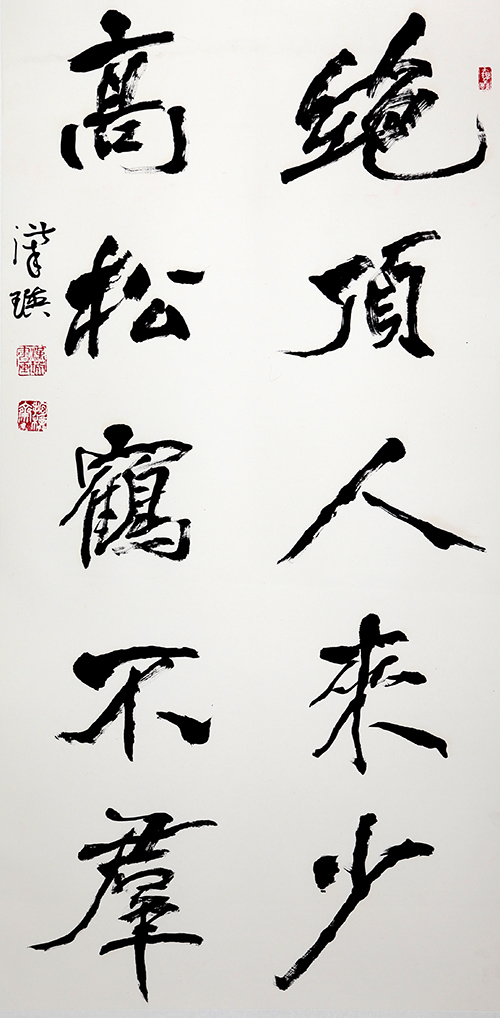 絶頂人來少
高松鶴不羣
漢瑛